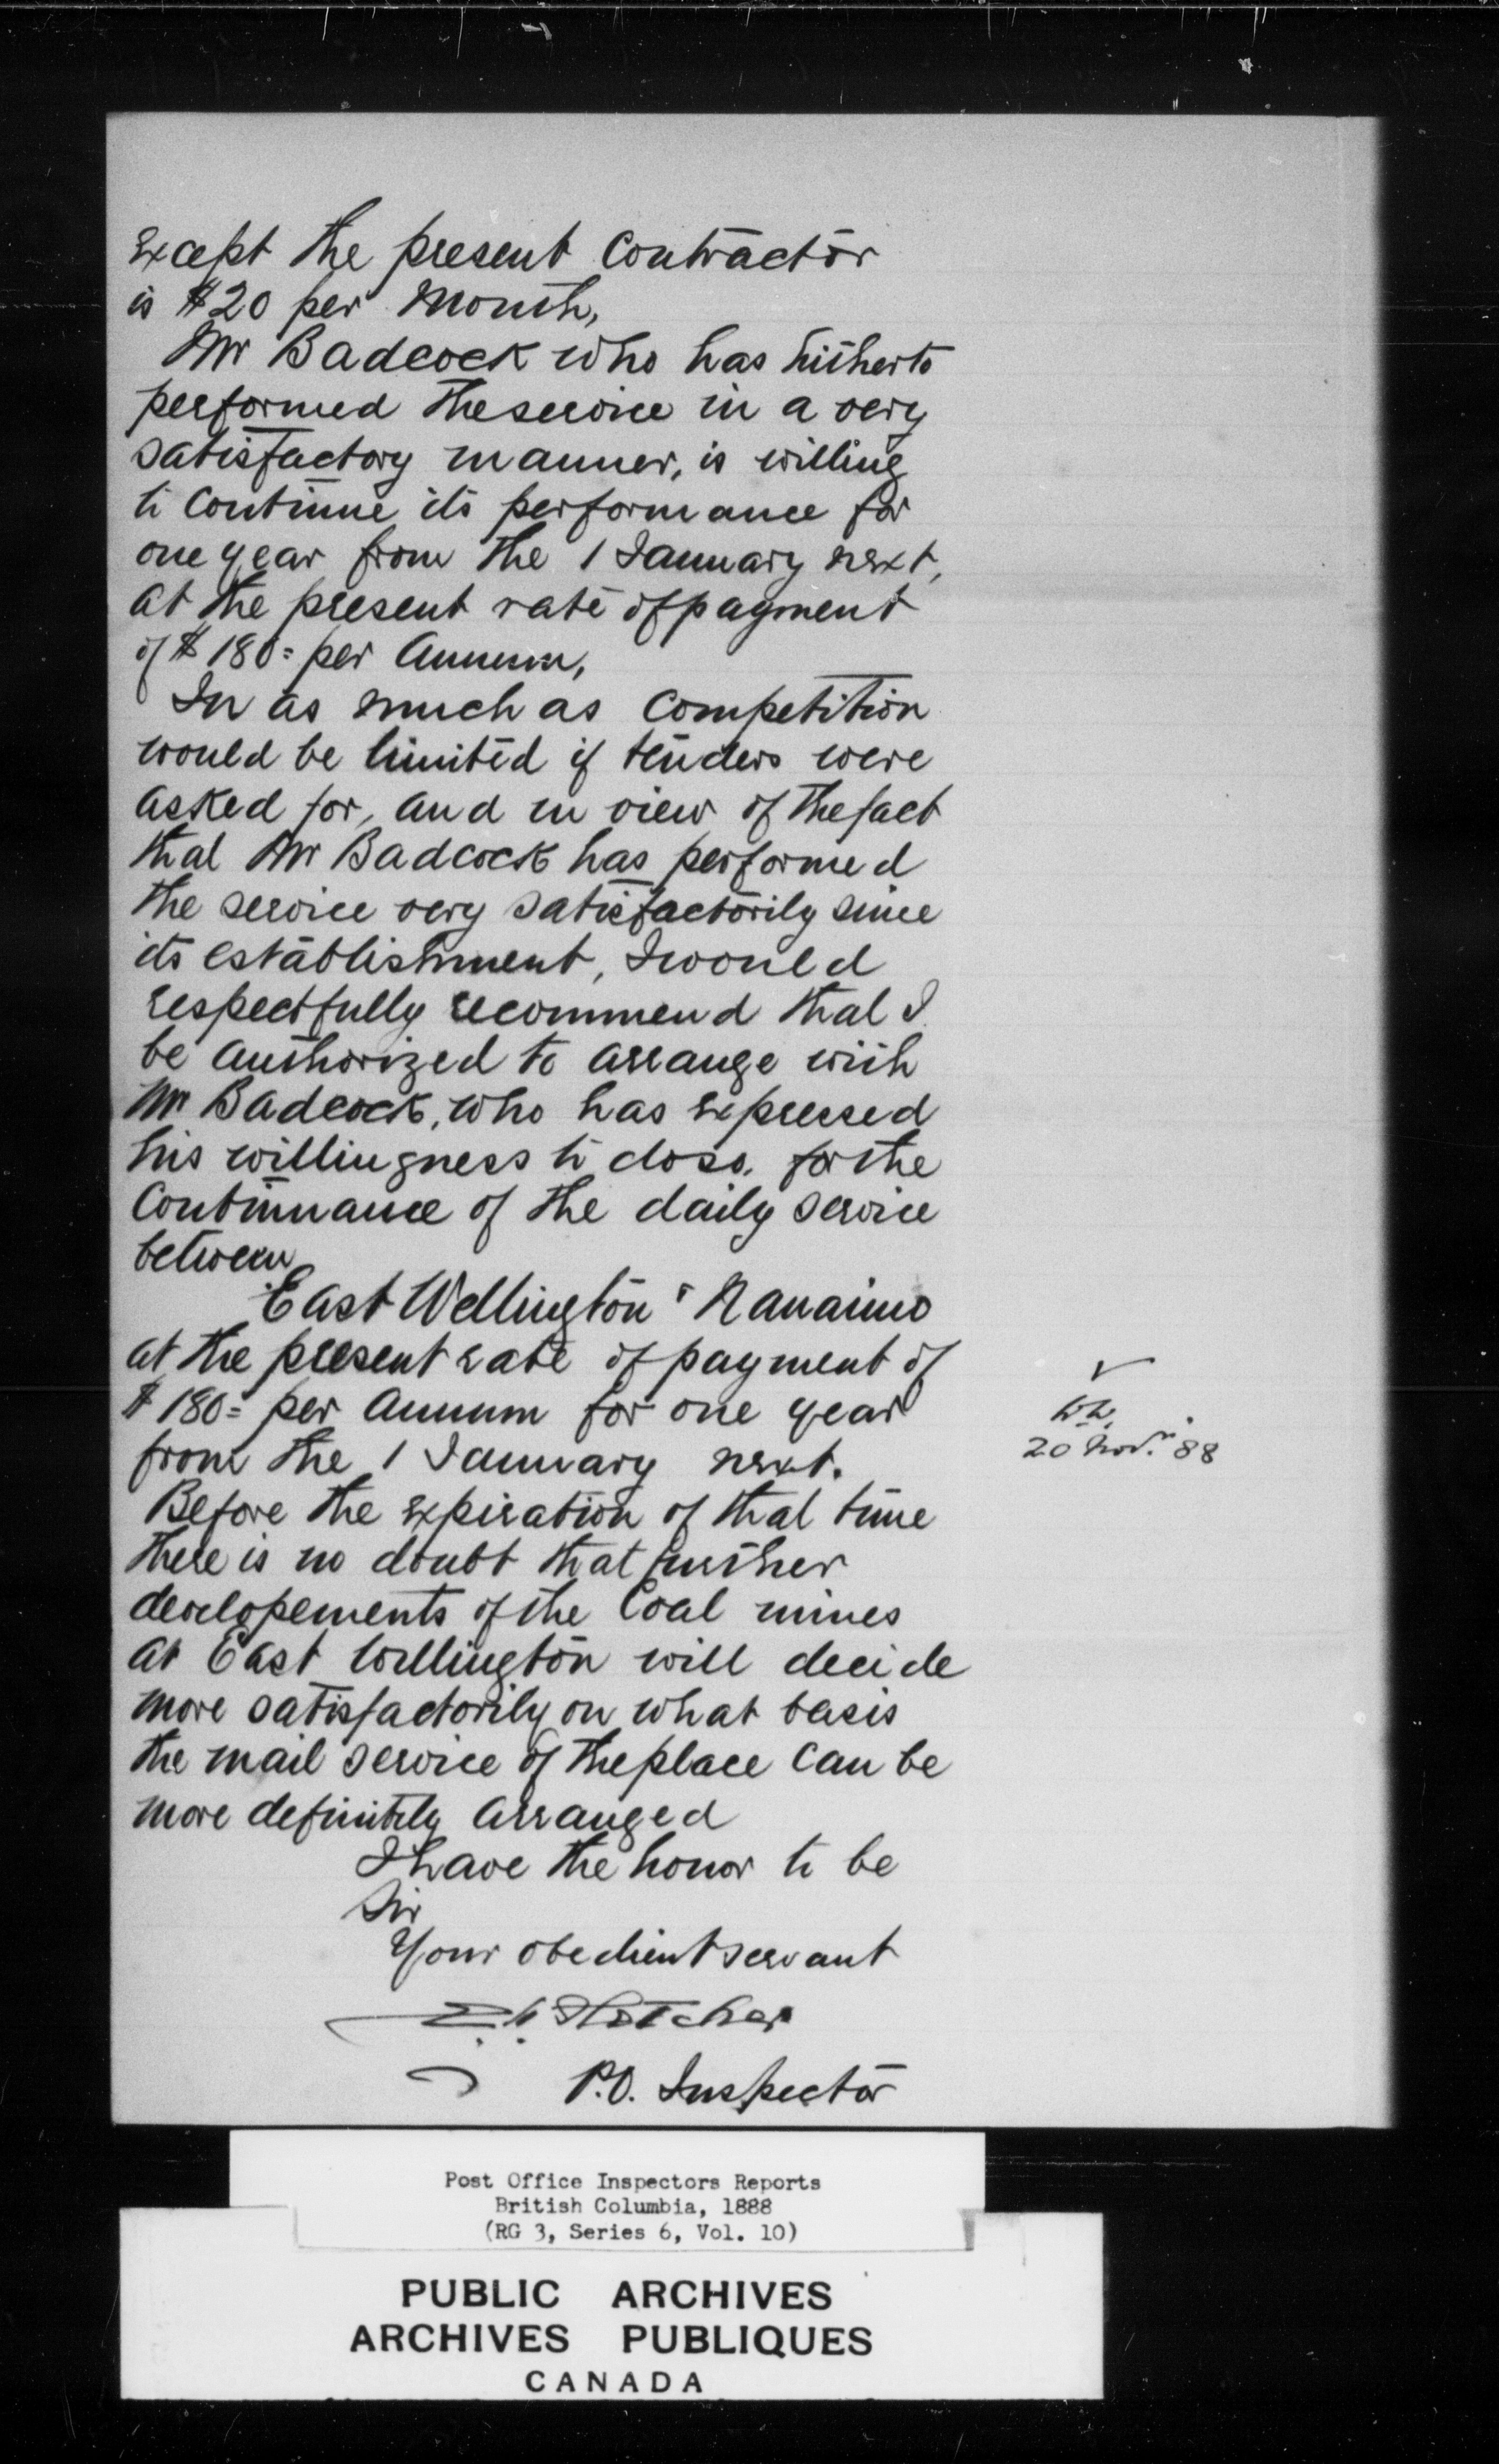 except the present Contractor
is $20 per Month,
Mr Badcock who has hitherto
performed the service in a very
satisfactory manner, is willing
to Continue its performance for
one year from the 1 January next,
at the present rate of payment
of $180= per Annum,
In as much as Competition
would be limited if tenders were
asked for, and in view of the fact
that Mr Badcock has performed
the service very satisfactorily since
its establishment, I would
respectfully recommend that I
be authorized to arrange with
Mr Badcock, who has expressed
his willingness to do so, for the
Continuance of the daily service
between
East Wellington & Nanaimo
at the present rate of payment of
$180= per Annum for one year
from the 1 January next.
20 Nov. 88
Before the expiration of that time
there is no doubt that further
developements of the Coal mines
at East Wellington will decide
more satisfactorily on what basis
the mail service of the place can be
more definitely arranged
I have the honor to be
Sir
Your obedient servant
Fletcher
P.O. Inspector
Post Office Inspectors Reports
British Columbia, 1888
(RG 3, Series 6, Vol. 10)
PUBLIC ARCHIVES
ARCHIVES PUBLIQUES
CANADA